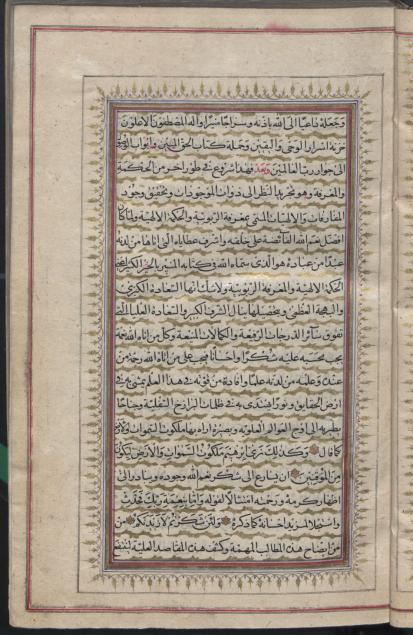 وجعله داعيا الى الله باذنه وسراجا منيرا واله المصطفون الاعلون
خزنة اسرار الوحى واليقين وحملة كتاب الحق المبين وابواب
الى جوار رب العالمين وبعد فهذا شروع فى طور اخر من الحكمة
والمعرفة وهو تجريد النظر الى ذوات الموجودات وتحقيق وجود
المفارقات والالهيات المسمى بمعرفة الربوبية والحكمة الالهية ولما كان
افضل نعم الله الفائضة على خلقه واشرف عطاياه التى اتاها من لدنه
عبدا من عباده هو الذى سماه الله فى كتابه المنير بالخير الكثير
الحكمة الالهية والمعرفة الربوبية ولا شك انها السعادة الكبرى
والبهجة العظمى وبتحصيلها ينال الشرف الكبير والسعادة العليا
تفوق سائر الدرجات الرفيعة والكمالات المنيعة وكل من اتاه الله
يجب بحسبه عليه شكرا واحسانا فيجب على من اتاه الله رحمة من
عنده وعلمه من لدنه علما وافاده من قوته فى هذا العلم يمشى به فى
ارض الحقايق ونورا يهتدى به فى ظلمات البرازخ السفلية وجناحا
يطير به الى اوج العوالم العلوية وبصيرة اراه بها ملكوت السموات والارض
كما قال وكذلك نرى ابرهيم ملكوت السموات والارض وليكون
من الموقنين ان يسارع الى شكر نعم الله وجوده ويبادر الى
اظهار كرمه ورحمته امتثالا لقوله واما بنعمة ربك فحدث
واستجلابا لمزيد احسانه كما ذكره ولئن شكرتم لازيدنكم من
من ايضاح هذه المطالب المهمة وكشف هذه المقاصد العلية لينتفع